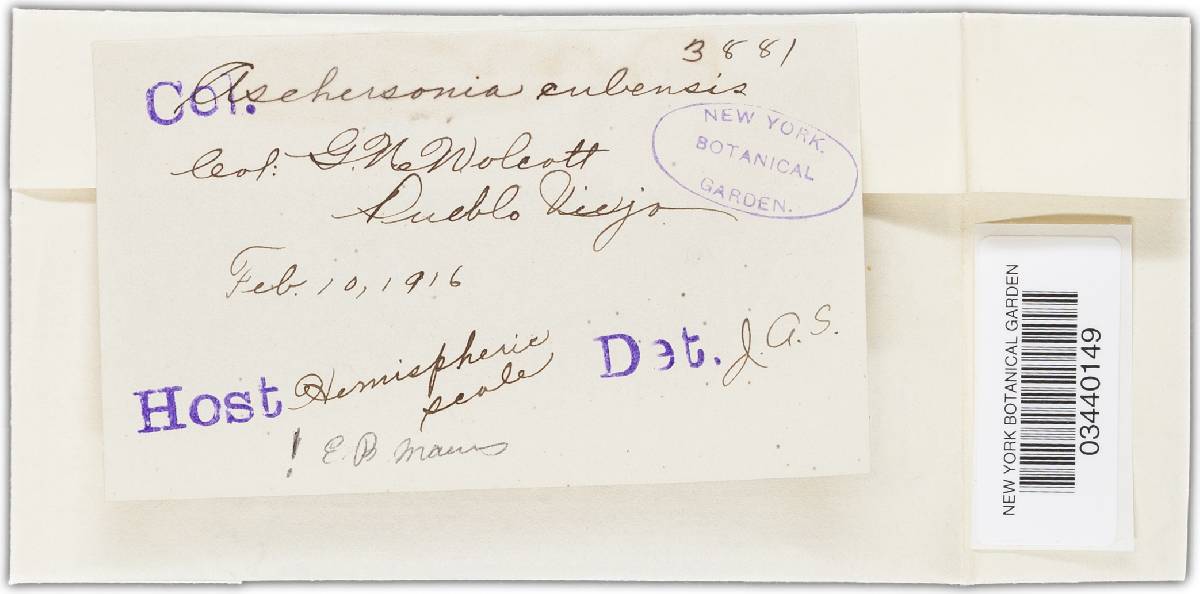 3881
Col. Aschersonia cubensis
NEW YORK
BOTANICAL
GARDEN.
Col: G. N. Wolcott
Pueblo Viejo
Feb. 10, 1916
Host Hemispheric
scale
Det. J. A. S.
! E. B. Mains
NEW YORK BOTANICAL GARDEN
03440149